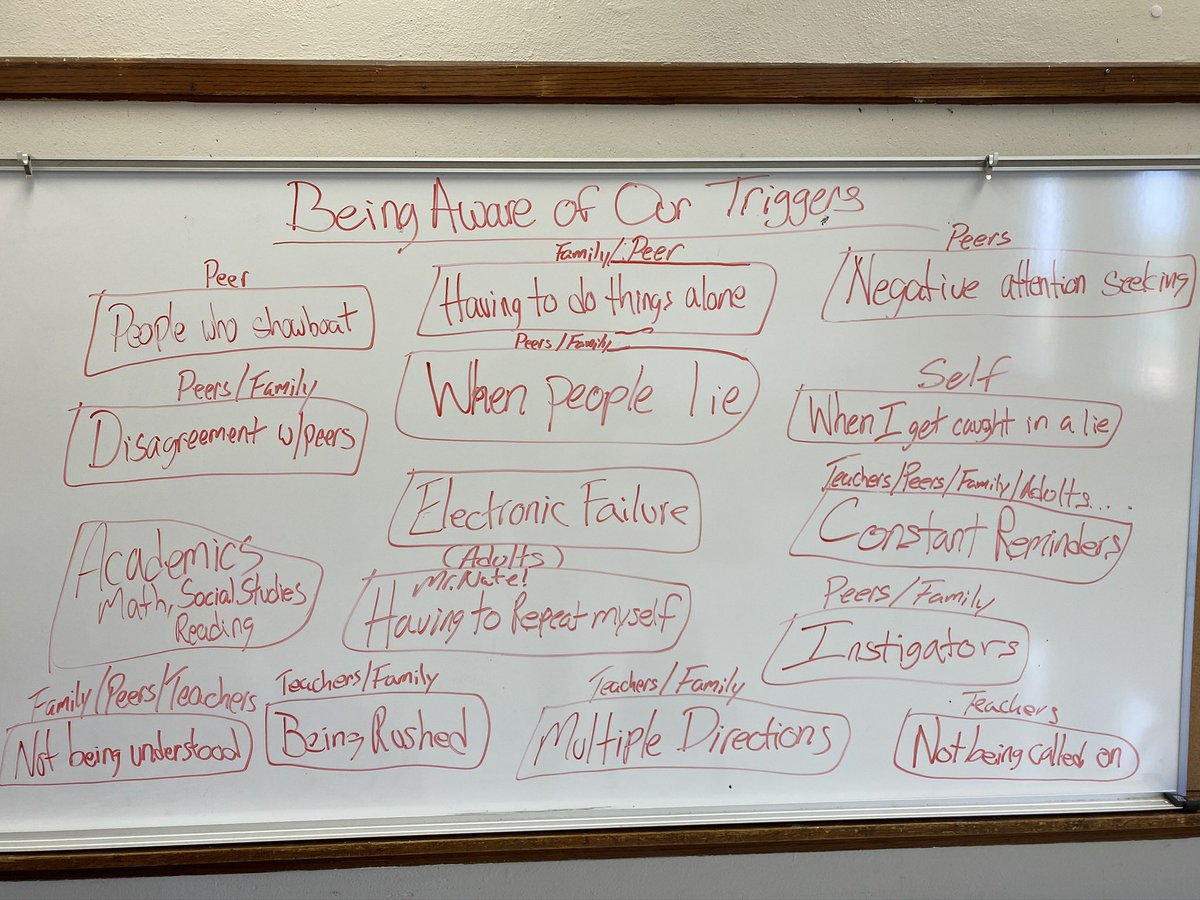 Being Aware of Our Triggers
Peer
People who showboat
Family/Peer
Having to do things alone
Peers
Negative attention seeking
Peers/Family
Disagreement w/peers
Peers/Family
When people lie
Self
When I get caught in a lie
Electronic Failure
Teachers/Peers/Family/Adults....
Constant Reminders
Academics
Math, Social Studies
Reading
(Adults)
Mr. Nate!
Having to Repeat myself
Peers/Family
Instigators
Family/Peers/Teachers
Not being understood
Teachers/Family
Being Rushed
Teachers/Family
Multiple Directions
Teachers
Not being called on